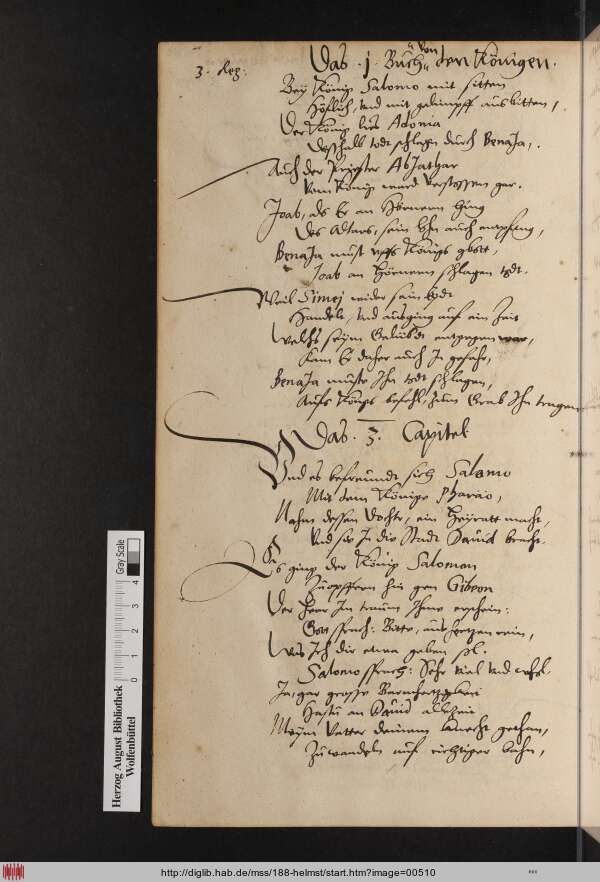 3. Reg.
Das .j. Buch von den Königen.
Bey König Salomo mit sitten
Höflich, Vnd mit gelimpff ausbitten,
Der König lies Adonia
Desshalb todt schlagn durch BenaJa,.
Auch der Priester AbJathar
Vom König ward Verstossen gar.
Joab, als Er an Hörnern hing
Des Altars, sein lohn auch empfing,
BenaJa must uffs Königs gbott,
Joab an Hörnern schlagen todt.
Weil Simej wider sein Eydt
Handelt, Vnd ausging auf ein Zeit
Welchs seym Gelübdt entgegen war,
Kam Er daher auch In gefahr,
BenaJa muste Ihn todt schlagen,
Aufs Königs befehl, zum Grab Ihn tragen
Das .3. Capitel
Vnd es befreundt sich Salomo
Mit dem Könige Pharao,
Nahm dessen Dochter, ein Heyratt macht,
Vnd sie In die Stadt Dauid bracht.
Es ging der König Salomon
Zuopffern hin gen Gibeon
Der Herr Im traum Ihme erschein:
Gott sprach: Bitte, aus hertzen rein,
Was Ich dir etwa geben sol.
Salomo sprach: Sehr viel Vnd wohl
Ja, gar grosse Barmhertzigkeit
Hastu an Dauid allezeit
Meym Vatter deinem knecht gethan,
Zuwandeln auf richtiger bahn,
Herzog August Bibliothek
Wolfenbüttel
0 1 2 3 4
Gray Scale
http://diglib.hab.de/mss/188-helmst/start.htm?image=00510